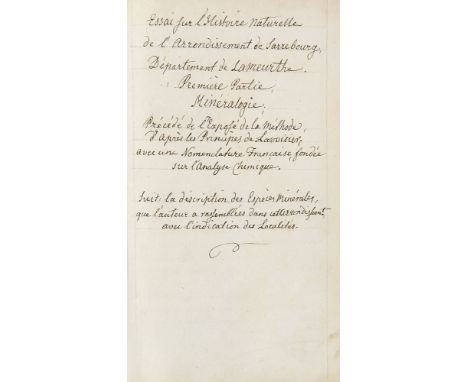 Essai sur l'Histoire Naturelle
de l'Arrondissement de Sarrebourg,
Département de Lameurthe.
Première Partie,
Minéralogie,
Précédé de l'Exposé de la Méthode,
d'après les Principes de Lavoisier,
avec une Nomenclature Française, fondée
sur l'Analyse Chimique.
Suit: la déscription des Espèces Minérales,
que l'auteur a rassemblées dans cet arrondissent,
avec l'indication des Localités.